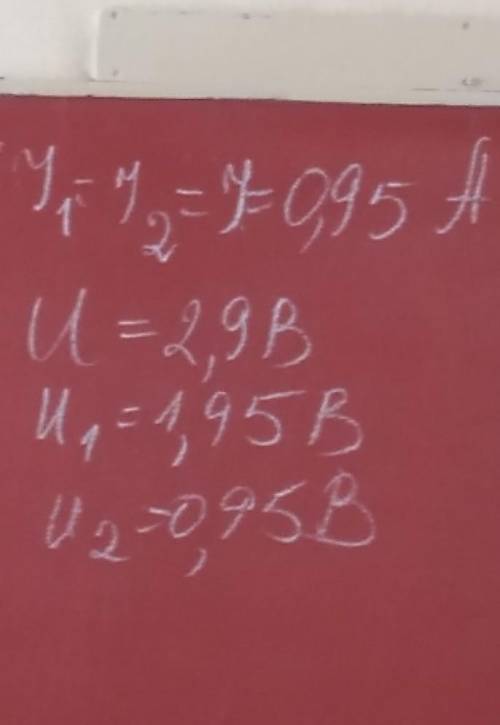 I₁=I₂=I=0,95 A
U=2,9В
U₁=1,95В
U₂=0,95В